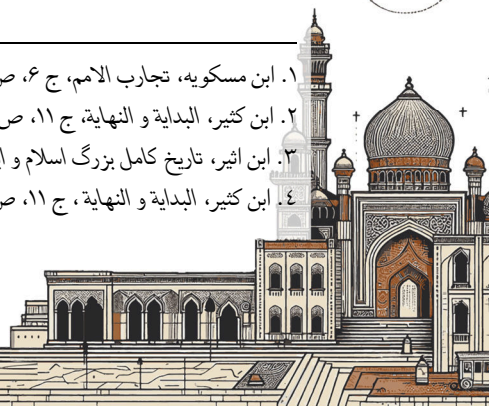 ۱. ابن مسکویه، تجارب الامم، ج ۶، ص
۲. ابن کثیر، البدایة و النهایة، ج ۱۱، ص
۳. ابن اثیر، تاریخ کامل بزرگ اسلام و
٤. ابن کثیر، البدایة و النهایة، ج ۱۱، ص